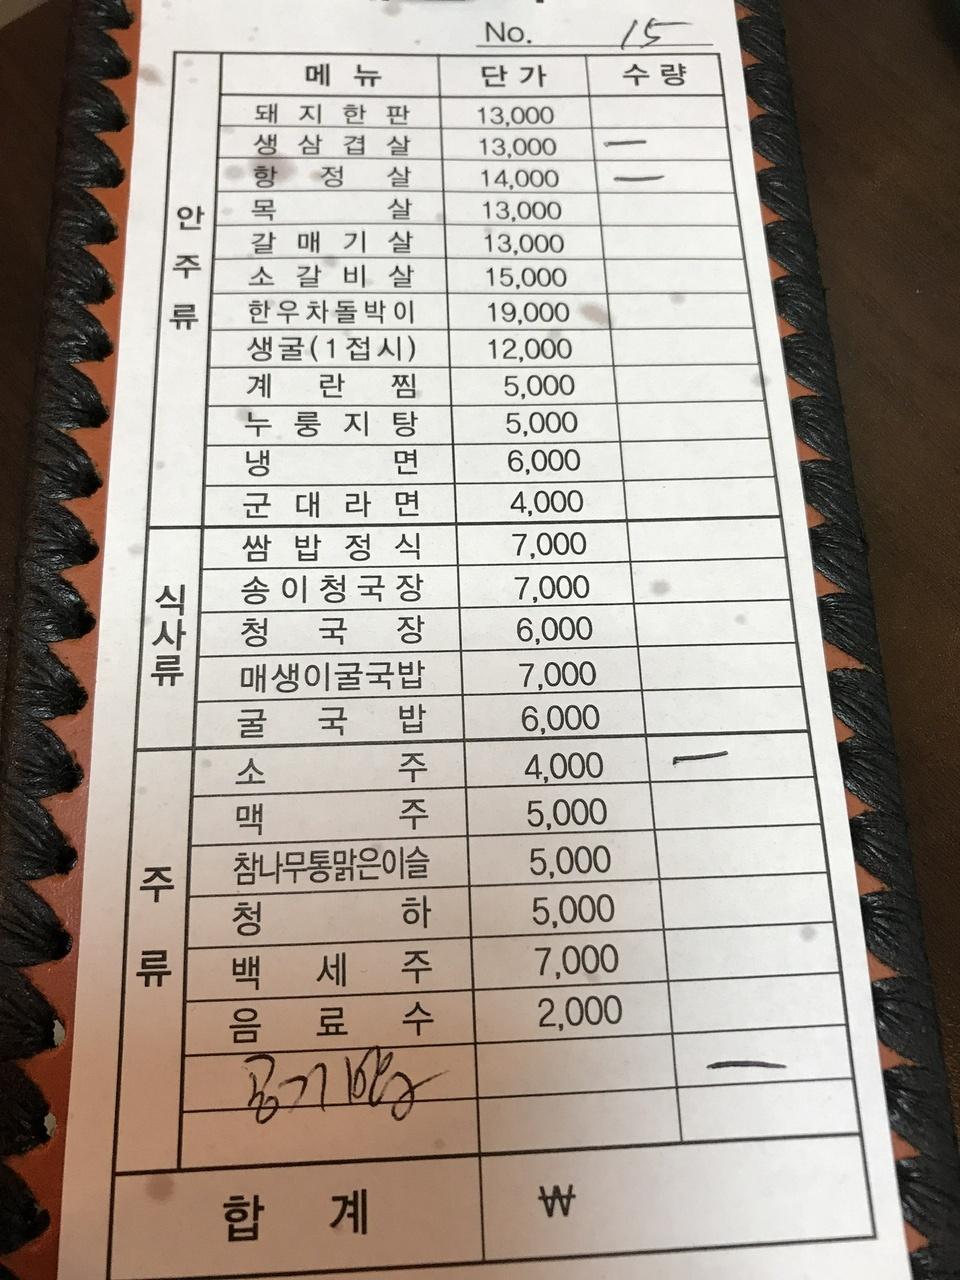 No. 15
메 뉴 단 가 수 량
안주류
돼 지 한 판 13,000
생 삼 겹 살 13,000 一
항 정 살 14,000 一
목 살 13,000
갈 매 기 살 13,000
소 갈 비 살 15,000
한우차돌박이 19,000
생굴(1접시) 12,000
계 란 찜 5,000
누 룽 지 탕 5,000
냉 면 6,000
군 대 라 면 4,000
식사류
쌈 밥 정 식 7,000
송이청국장 7,000
청 국 장 6,000
매생이굴국밥 7,000
굴 국 밥 6,000
주류
소 주 4,000 一
맥 주 5,000
참나무통맑은이슬 5,000
청 하 5,000
백 세 주 7,000
음 료 수 2,000
공기밥 一
합 계 ₩